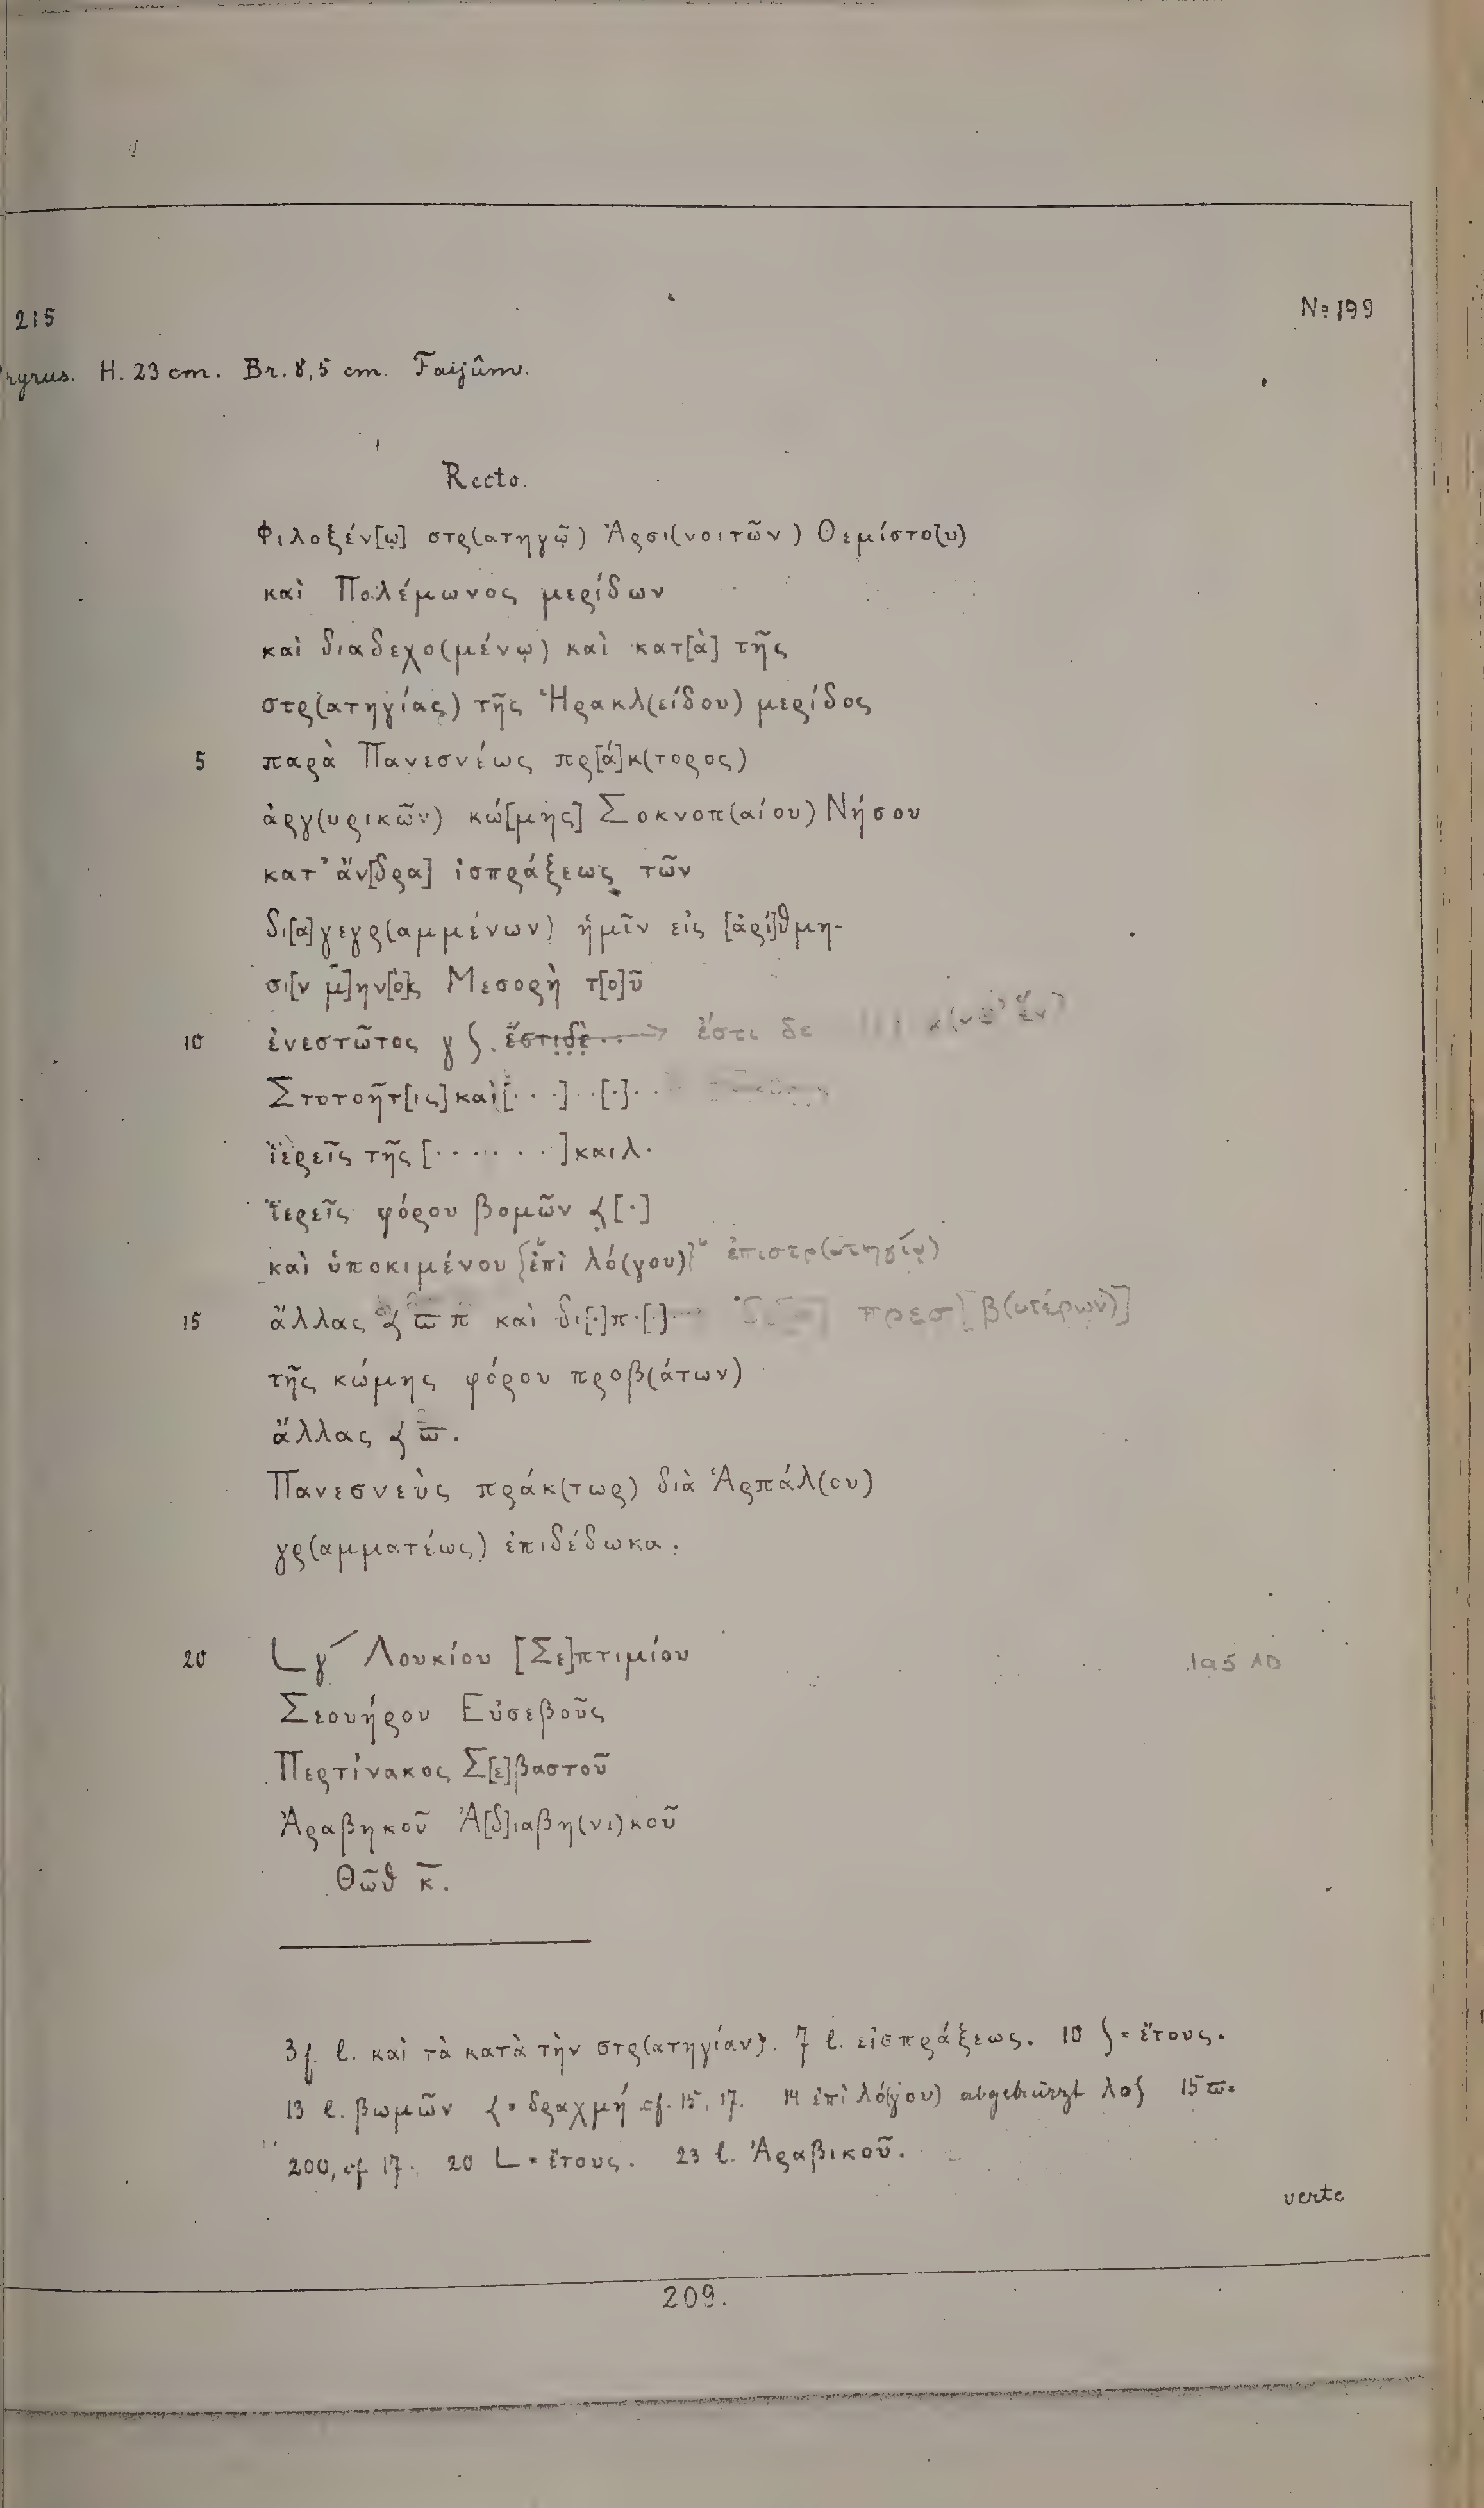 215 No 199
H. 23 cm. Br. 8,5 cm. Faijûm.
Recto.
Φιλοξέν[ῳ] στρ(ατηγῷ) Ἀρσι(νοιτῶν) Θεμίστο(υ)
καὶ Πολέμωνος μερίδων
καὶ διαδεχο(μένῳ) καὶ κατ[ὰ] τῆς
στρ(ατηγίας) τῆς Ἡρακλ(είδου) μερίδος
5 παρὰ Πανεσνέως πρ[ά]κ(τορος)
ἀργ(υρικῶν) κώ[μης] Σοκνοπ(αίου) Νήσου
κατ' ἄν[δρα] ἰσπράξεως τῶν
δι[α]γεγρ(αμμένων) ἡμῖν εἰς [ἀρί]θμη-
σι[ν μ]ην[ὸ]ς Μεσορὴ τ[ο]ῦ
10 ἐνεστῶτος γ ʃ. ἔστι δὲ.. → ἔστι δε
Στοτοῆτ[ις] καὶ [· · ·] ··[·]··
ἱερεῖς τῆς [· · · · · · ·] και λ·
ἱερεῖς φόρου βομῶν 𐅻[·]
καὶ ὑποκιμένου {ἐπὶ λό(γου)} ἐπιστρ(ατηγίᾳ)
15 ἄλλας 𐅻 ϖ π καὶ δι[·]π·[·] πρεσ[β(υτέρων)]
τῆς κώμης φόρου προβ(άτων)
ἄλλας 𐅻 ϖ.
Πανεσνεὺς πράκ(τωρ) διὰ Ἁρπάλ(ου)
γρ(αμματέως) ἐπιδέδωκα.
20 𐅹 γ´ Λουκίου [Σε]πτιμίου 195 AD
Σεουήρου Εὐσεβοῦς
Περτίνακος Σ[ε]βαστοῦ
Ἀραβηκοῦ Ἀ[δ]ιαβη(νι)κοῦ
Θῶθ κ̅.
3 f. l. καὶ τὰ κατὰ τὴν στρ(ατηγίαν). 7 l. εἰσπράξεως. 10 ʃ = ἔτους.
13 l. βωμῶν 𐅻 = δραχμή cf. 15, 17. 14 ἐπὶ λό(γου) abgekürzt λοʃ 15 ϖ =
200, cf 17. 20 𐅹 = ἔτους. 23 l. Ἀραβικοῦ.
verte
209.